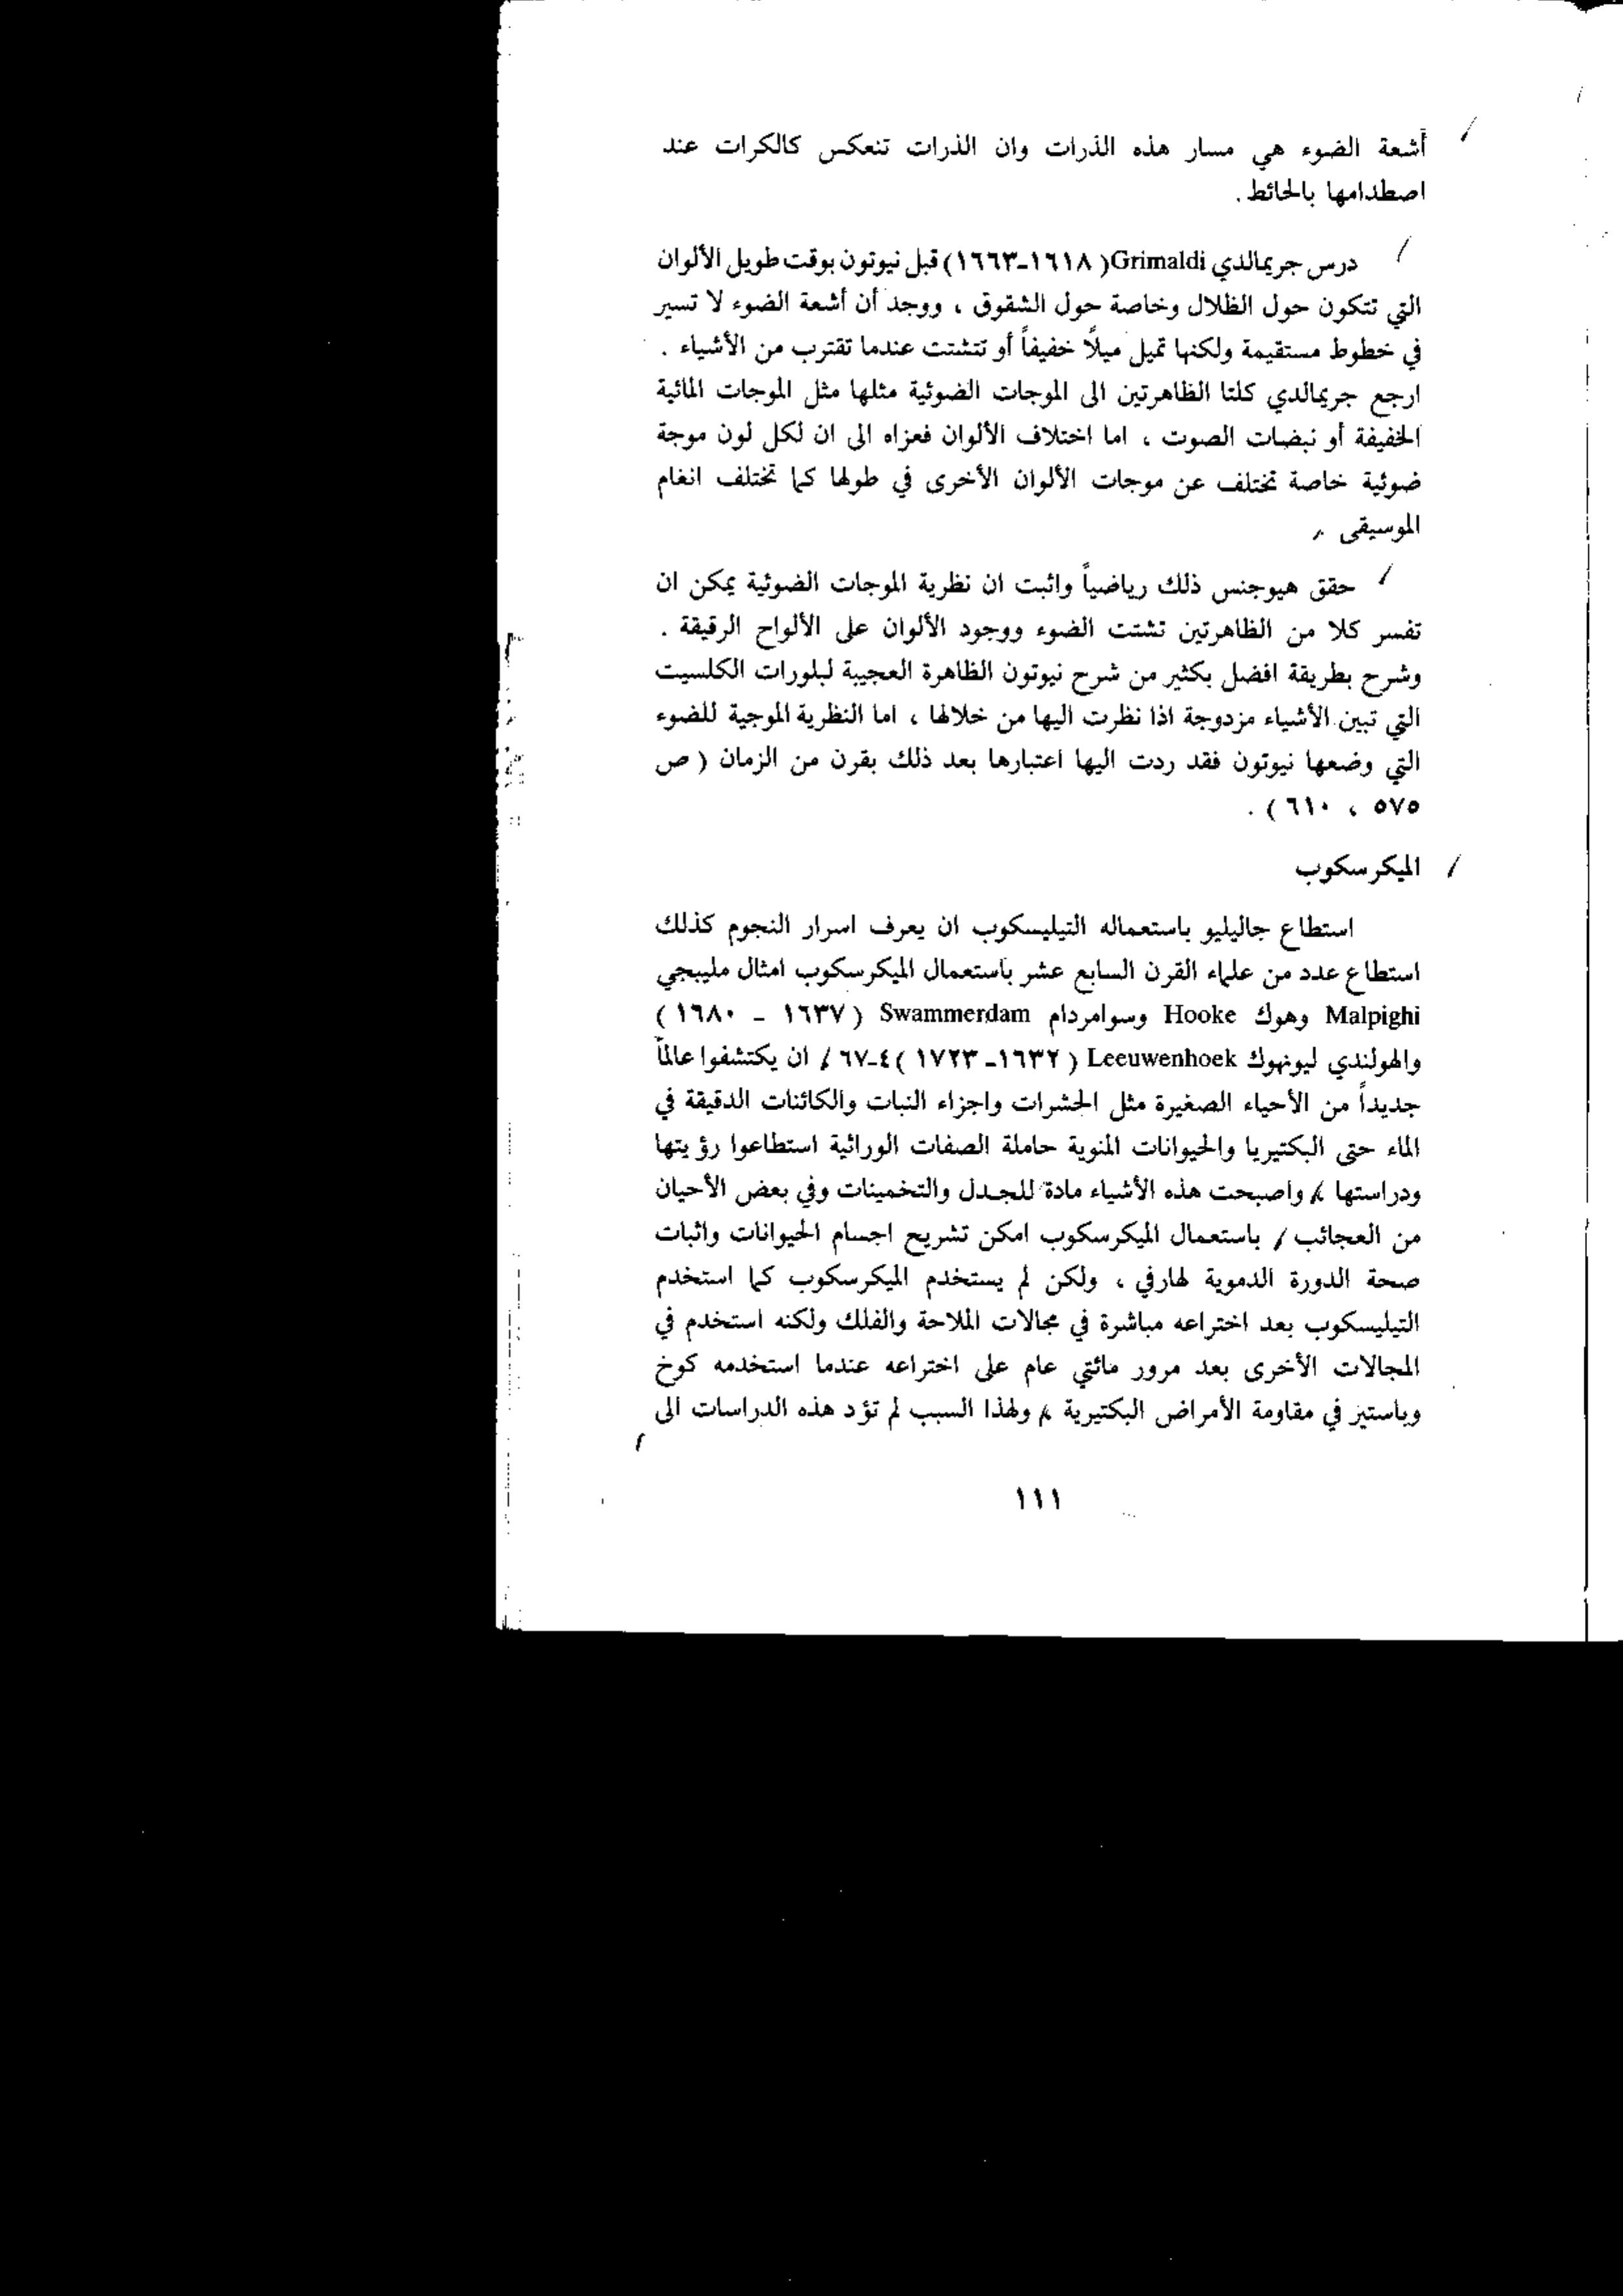 أشعة الضوء هي مسار هذه الذرات وان الذرات تنعكس كالكرات عند
اصطدامها بالحائط .
درس جريمالدي Grimaldi( ١٦١٨-١٦٦٣) قبل نيوتون بوقت طويل الألوان
التي تتكون حول الظلال وخاصة حول الشقوق ، ووجد أن أشعة الضوء لا تسير
في خطوط مستقيمة ولكنها تميل ميلاً خفيفاً أو تتشتت عندما تقترب من الأشياء .
ارجع جريمالدي كلتا الظاهرتين الى الموجات الضوئية مثلها مثل الموجات المائية
الخفيفة أو نبضات الصوت ، اما اختلاف الألوان فعزاه الى ان لكل لون موجة
ضوئية خاصة تختلف عن موجات الألوان الأخرى في طولها كما تختلف انغام
الموسيقى .
حقق هيوجنس ذلك رياضياً واثبت ان نظرية الموجات الضوئية يمكن ان
تفسر كلا من الظاهرتين تشتت الضوء ووجود الألوان على الألواح الرقيقة .
وشرح بطريقة افضل بكثير من شرح نيوتون الظاهرة العجيبة لبلورات الكلسيت
التي تبين الأشياء مزدوجة اذا نظرت اليها من خلالها ، اما النظرية الموجية للضوء
التي وضعها نيوتون فقد ردت اليها اعتبارها بعد ذلك بقرن من الزمان ( ص
٥٧٥ ، ٦١٠ ) .
الميكرسكوب
استطاع جاليليو باستعماله التيليسكوب ان يعرف اسرار النجوم كذلك
استطاع عدد من علماء القرن السابع عشر باستعمال الميكرسكوب امثال مليبجي
Malpighi وهوك Hooke وسوامردام Swammerdam ( ١٦٣٧ - ١٦٨٠ )
والهولندي ليونهوك Leeuwenhoek ( ١٦٣٢- ١٧٢٣ )٤-٦٧ ان يكتشفوا عالماً
جديداً من الأحياء الصغيرة مثل الحشرات واجزاء النبات والكائنات الدقيقة في
الماء حتى البكتيريا والحيوانات المنوية حاملة الصفات الوراثية استطاعوا رؤيتها
ودراستها . واصبحت هذه الأشياء مادة للجدل والتخمينات وفي بعض الأحيان
من العجائب . باستعمال الميكرسكوب امكن تشريح اجسام الحيوانات واثبات
صحة الدورة الدموية لهارفي ، ولكن لم يستخدم الميكرسكوب كما استخدم
التيليسكوب بعد اختراعه مباشرة في مجالات الملاحة والفلك ولكنه استخدم في
المجالات الأخرى بعد مرور مائتي عام على اختراعه عندما استخدمه كوخ
وباستيز في مقاومة الأمراض البكتيرية . ولهذا السبب لم تؤد هذه الدراسات الى
١١١